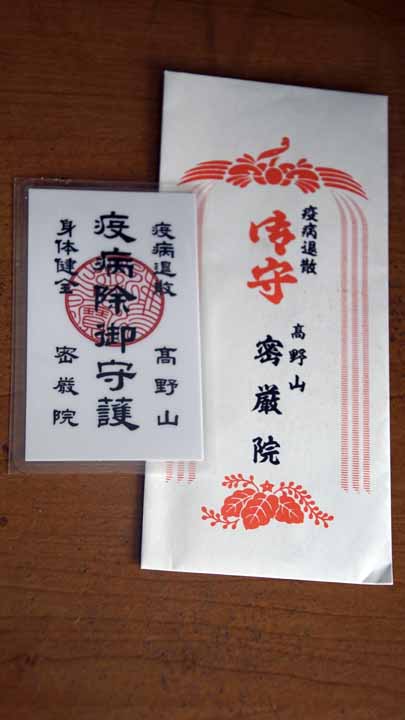 疫病退散 高野山
疫病除御守護
身体健全 密厳院
疫病退散
御守
高野山
密厳院